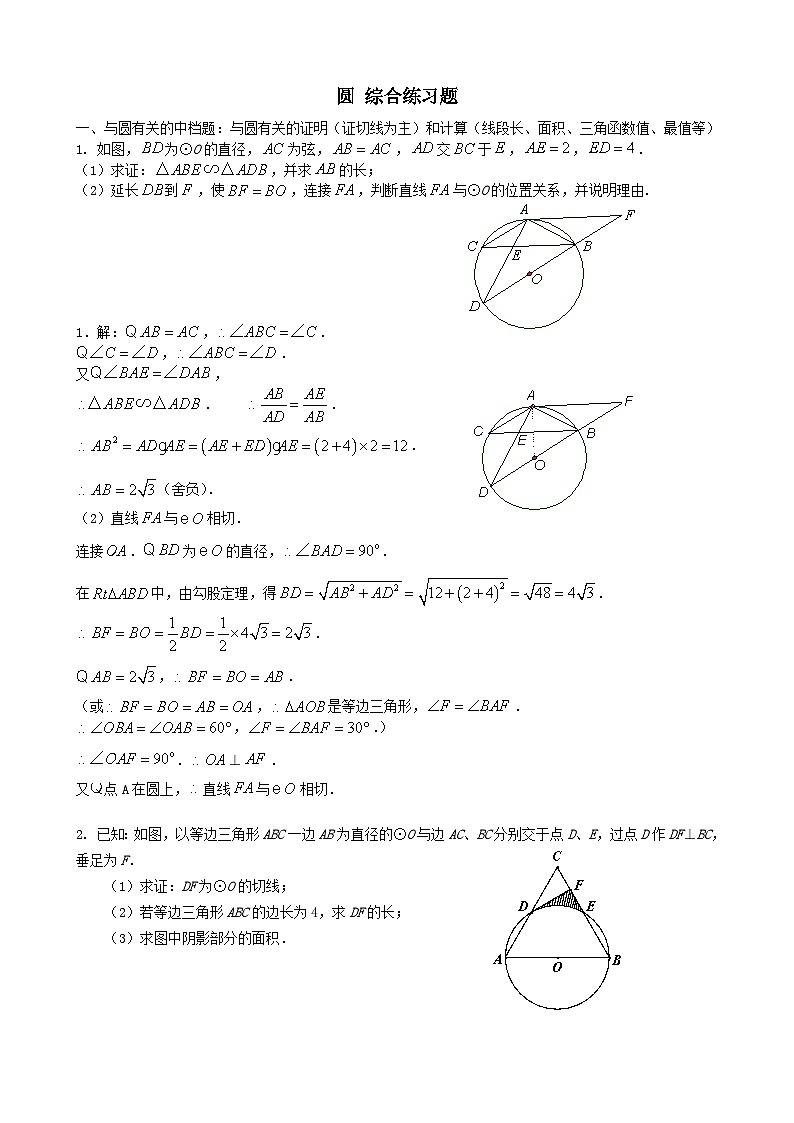 圆 综合练习题
一、与圆有关的中档题：与圆有关的证明（证切线为主）和计算（线段长、面积、三角函数值、最值等）
1. 如图，BD为⊙O的直径，AC为弦，AB = AC，AD交BC于E，AE = 2，ED = 4．
（1）求证：△ABE∽△ADB，并求AB的长；
（2）延长DB到F，使BF = BO，连接FA，判断直线FA与⊙O的位置关系，并说明理由．
A
F
C
E
B
O
D
1．解：Q AB = AC，∴∠ABC = ∠C．
Q∠C = ∠D，∴∠ABC = ∠D．
又Q∠BAE = ∠DAB，
∴△ABE∽△ADB． ∴ AB/AD = AE/AB．
∴ AB² = ADgAE = (AE + ED)gAE = (2 + 4) × 2 = 12．
∴ AB = 2√3（舍负）．
（2）直线FA与e O相切．
连接OA．Q BD为e O的直径，∴∠BAD = 90°．
在Rt∆ABD中，由勾股定理，得BD = √(AB² + AD²) = √(12 + (2 + 4)²) = √48 = 4√3．
∴ BF = BO = 1/2 BD = 1/2 × 4√3 = 2√3．
Q AB = 2√3，∴ BF = BO = AB．
（或∴ BF = BO = AB = OA，∴ ∆AOB是等边三角形，∠F = ∠BAF．
∴∠OBA = ∠OAB = 60°，∠F = ∠BAF = 30°．）
∴∠OAF = 90°．∴ OA ⊥ AF．
又Q点A在圆上，∴直线FA与e O相切．
A
F
C
E
B
O
D
2. 已知：如图，以等边三角形ABC一边AB为直径的⊙O与边AC、BC分别交于点D、E，过点D作DF⊥BC，
垂足为F．
（1）求证：DF为⊙O的切线；
（2）若等边三角形ABC的边长为4，求DF的长；
（3）求图中阴影部分的面积．
C
F
D
E
A
O
B